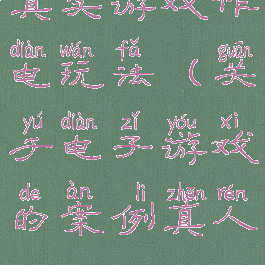 真实游戏作
diàn wán fǎ guān
电玩法(关
yú diàn zǐ yóu xì
于电子游戏
de àn lì zhēn rén
的案例真人